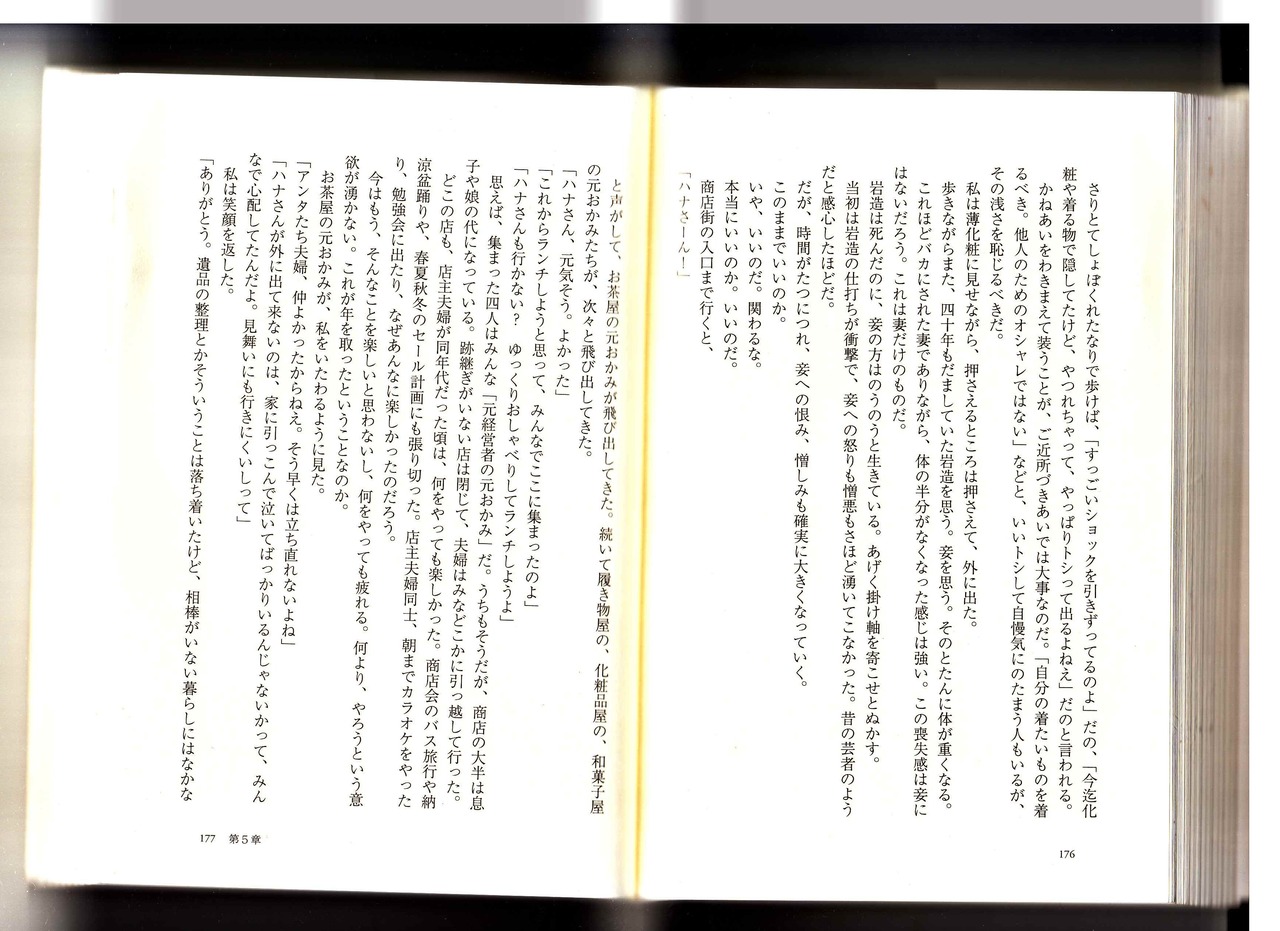 さりとてしょぼくれたなりで歩けば、「すっごいショックを引きずってるのよ」だの、「今迄化
粧や着る物で隠してたけど、やつれちゃって、やっぱりトシって出るよねえ」だのと言われる。
かねあいをわきまえて装うことが、ご近所づきあいでは大事なのだ。「自分の着たいものを着
るべき。他人のためのオシャレではない」などと、いいトシして自慢気にのたまう人もいるが、
その浅さを恥じるべきだ。
私は薄化粧に見せながら、押さえるところは押さえて、外に出た。
歩きながらまた、四十年もだましていた岩造を思う。妾を思う。そのとたんに体が重くなる。
これほどバカにされた妻でありながら、体の半分がなくなった感じは強い。この喪失感は妾に
はないだろう。これは妻だけのものだ。
岩造は死んだのに、妾の方はのうのうと生きている。あげく掛け軸を寄こせとぬかす。
当初は岩造の仕打ちが衝撃で、妾への怒りも憎悪もさほど湧いてこなかった。昔の芸者のよう
だと感心したほどだ。
だが、時間がたつにつれ、妾への恨み、憎しみも確実に大きくなっていく。
このままでいいのか。
いや、いいのだ。関わるな。
本当にいいのか。いいのだ。
商店街の入口まで行くと、
「ハナさーん！」
176
と声がして、お茶屋の元おかみが飛び出してきた。続いて履き物屋の、化粧品屋の、和菓子屋
の元おかみたちが、次々と飛び出してきた。
「ハナさん、元気そう。よかった」
「これからランチしようと思って、みんなでここに集まったのよ」
「ハナさんも行かない？　ゆっくりおしゃべりしてランチしようよ」
思えば、集まった四人はみんな「元経営者の元おかみ」だ。うちもそうだが、商店の大半は息
子や娘の代になっている。跡継ぎがいない店は閉じて、夫婦はみなどこかに引っ越して行った。
どこの店も、店主夫婦が同年代だった頃は、何をやっても楽しかった。商店会のバス旅行や納
涼盆踊りや、春夏秋冬のセール計画にも張り切った。店主夫婦同士、朝までカラオケをやった
り、勉強会に出たり、なぜあんなに楽しかったのだろう。
今はもう、そんなことを楽しいと思わないし、何をやっても疲れる。何より、やろうという意
欲が湧かない。これが年を取ったということなのか。
お茶屋の元おかみが、私をいたわるように見た。
「アンタたち夫婦、仲よかったからねえ。そう早くは立ち直れないよね」
「ハナさんが外に出て来ないのは、家に引っこんで泣いてばっかりいるんじゃないかって、みん
なで心配してたんだよ。見舞いにも行きにくいしって」
私は笑顔を返した。
「ありがとう。遺品の整理とかそういうことは落ち着いたけど、相棒がいない暮らしにはなかな
177 第5章